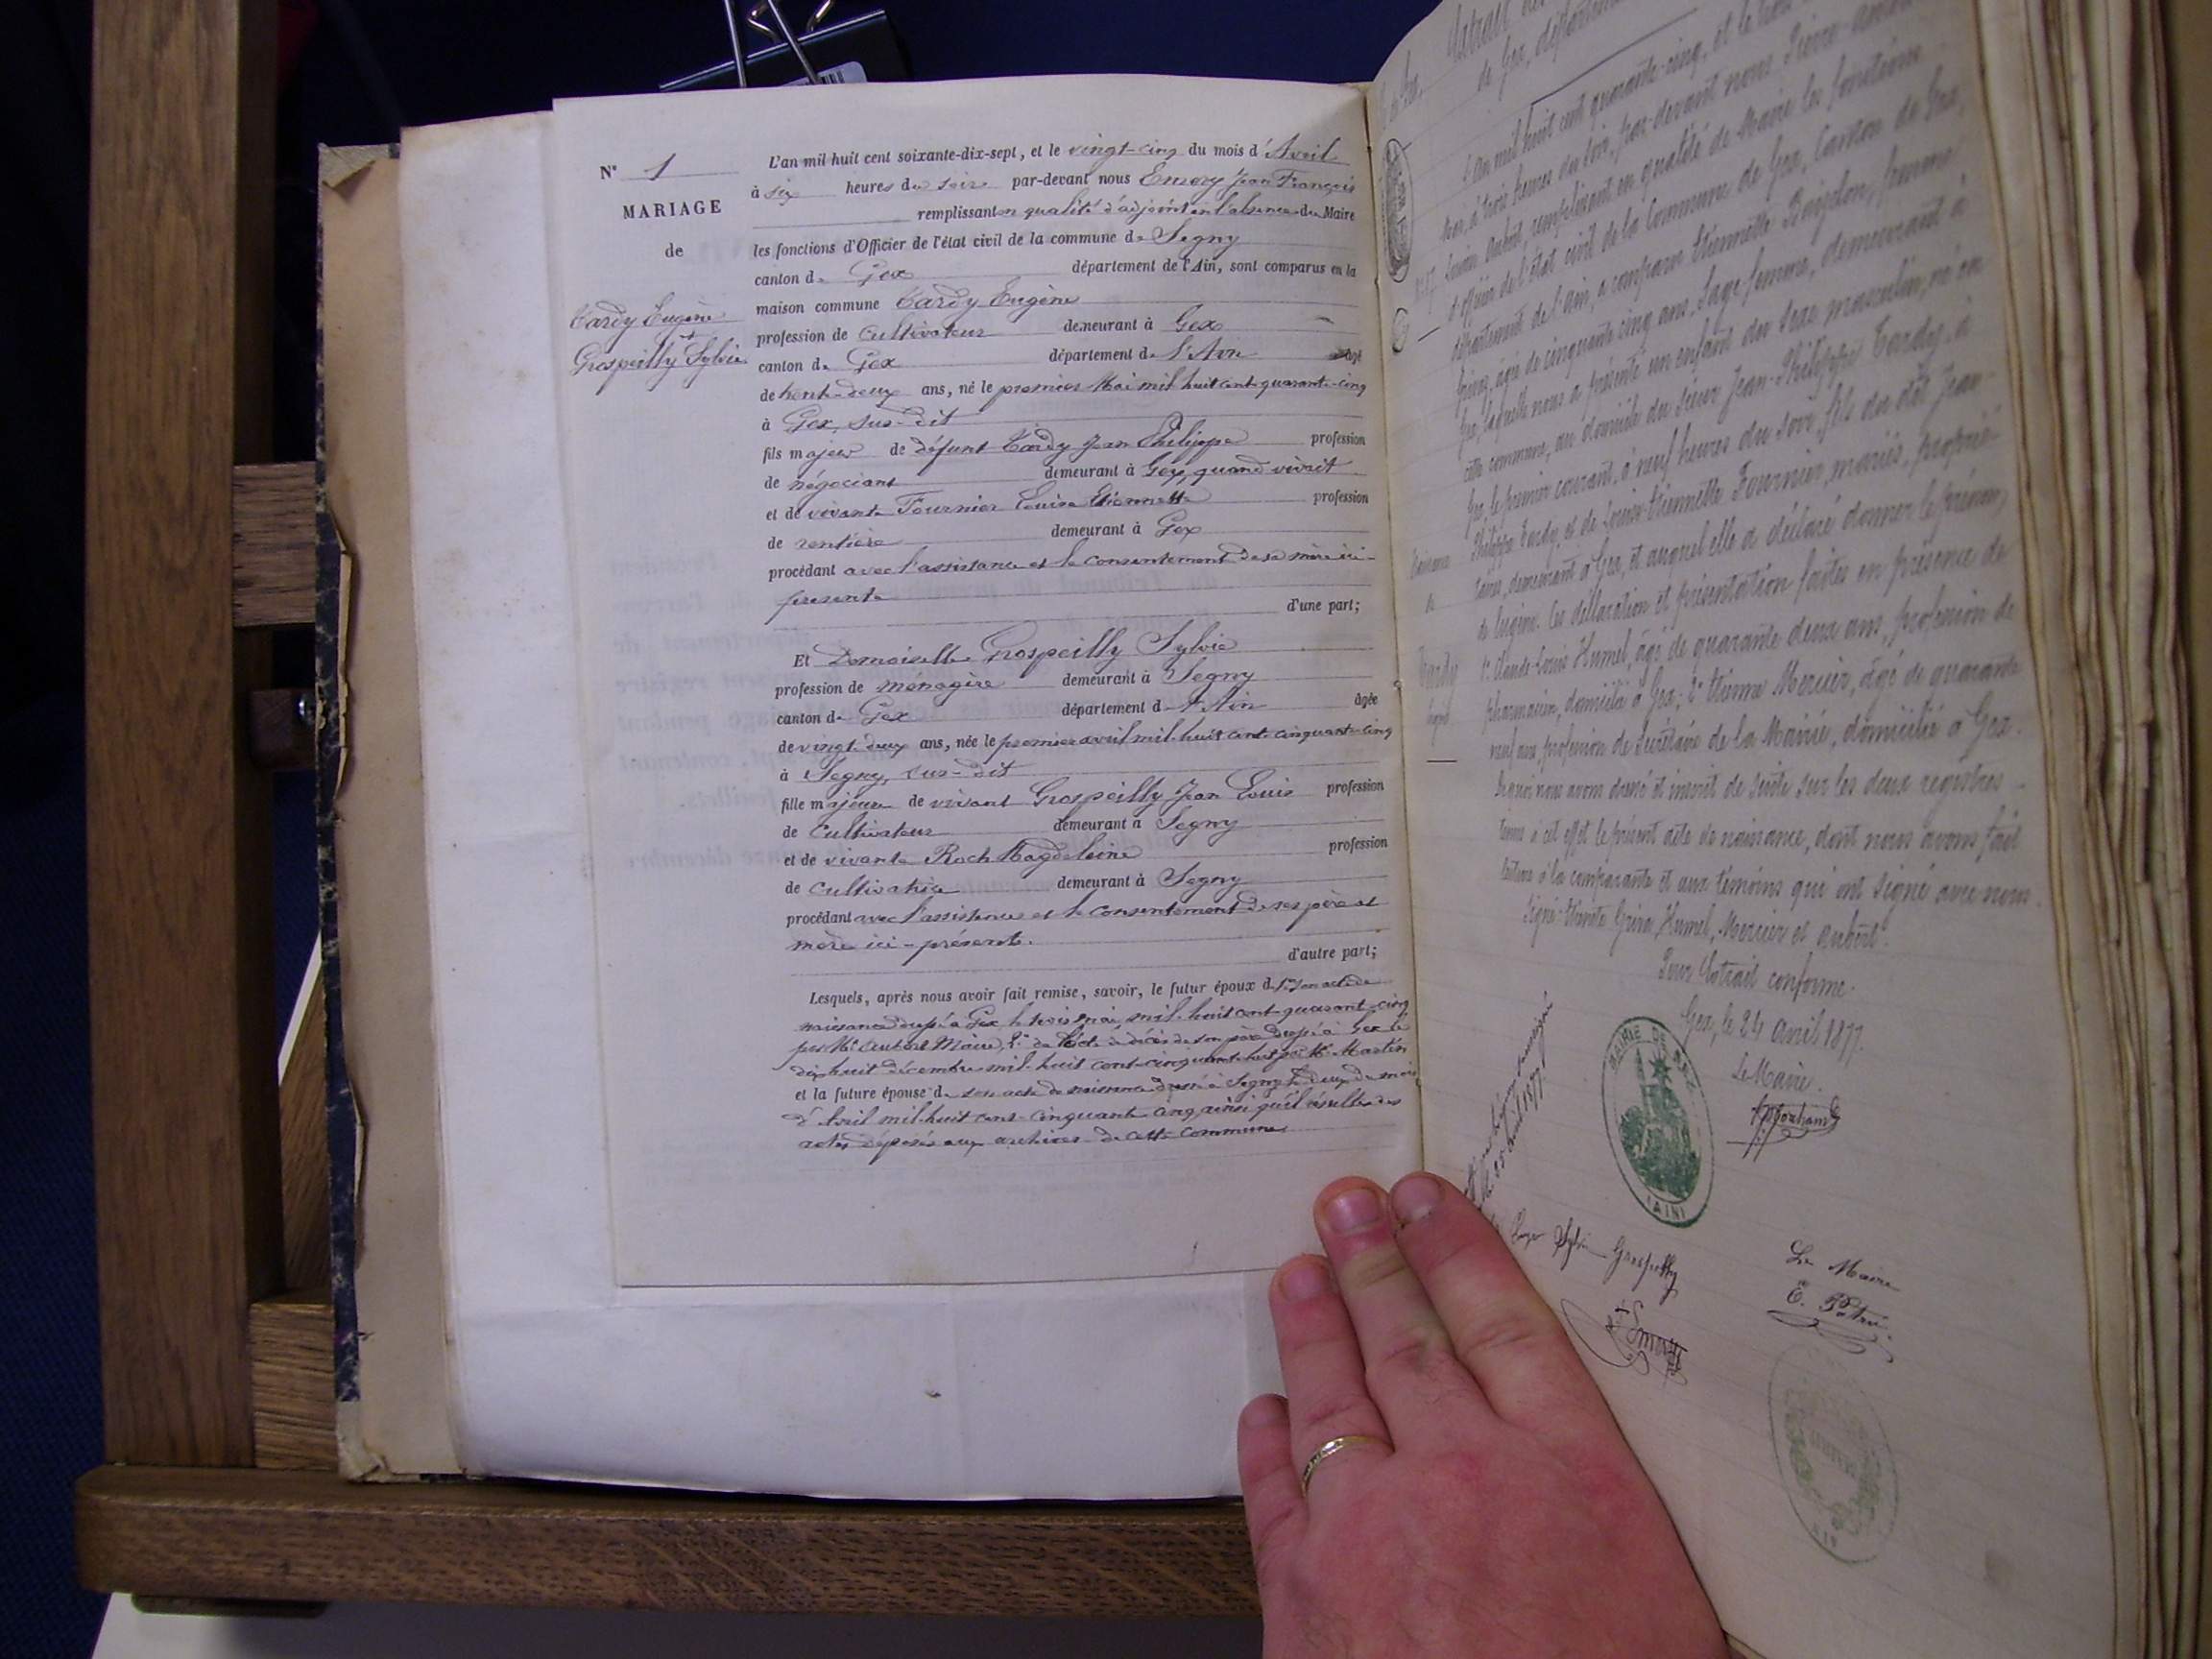 N° 1
MARIAGE
de
Tardy Eugène
et
Grospeilly Sylvie
L'an mil huit cent soixante-dix-sept, et le vingt-cinq du mois d'Avril
à six heures du soir par-devant nous Emery Jean François
remplissant en qualité d'adjoint en l'absence du Maire
les fonctions d'Officier de l'état civil de la commune de Segny
canton de Gex département de l'Ain, sont comparus en la
maison commune Tardy Eugène
profession de cultivateur demeurant à Gex
canton de Gex département de l'Ain âgé
de trente-deux ans, né le premier Mai mil huit cent quarante-cinq
à Gex, sus-dit
fils majeur de défunt Tardy Jean Philippe profession
de négociant demeurant à Gex, quand vivait
et de vivante Fournier Louise Etiennette profession
de rentière demeurant à Gex
procédant avec l'assistance et le consentement de sa mère ici-
présente d'une part;
Et Demoiselle Grospeilly Sylvie
profession de ménagère demeurant à Segny
canton de Gex département de l'Ain âgée
de vingt-deux ans, née le premier avril mil-huit cent cinquante-cinq
à Segny, sus-dit
fille majeure de vivant Grospeilly Jean Louis profession
de cultivateur demeurant à Segny
et de vivante Roch Magdeleine profession
de cultivatrice demeurant à Segny
procédant avec l'assistance et le consentement de ses père et
mère ici-présents.
d'autre part;
Lesquels, après nous avoir fait remise, savoir, le futur époux de 1° son acte de
naissance dressé à Gex le trois mai, mil-huit cent-quarante-cinq
par Mr Aubert Maire, 2° de l'acte de décès de son père dressé à Gex le
dix huit décembre mil-huit cent-cinquante-huit par Mr Martin
et la future épouse de son acte de naissance dressé à Segny le deux du mois
d'Avril mil-huit cent-cinquante cinq, ainsi qu'il résulte des
actes déposés aux archives de cette commune
Extrait
de Gex, département
L'an mil huit cent quarante-cinq, et le trois
mai, à trois heures du soir, par-devant nous Pierre
Aubert, remplissant en qualité de Maire les fonctions
d'officier de l'état civil de la Commune de Gex, Canton de Gex,
département de l'Ain, a comparu Etiennette femme
Grivaz, âgée de cinquante cinq ans, Sage-femme, demeurant à
Gex, laquelle nous a présenté un enfant du sexe masculin, né en
cette commune, au domicile du sieur Jean-Philippe Tardy, à
Gex, le premier courant, à neuf heures du soir, fils du dit Jean-
Philippe Tardy, et de Louise-Etiennette Fournier, mariés, proprié-
taires, demeurant à Gex, et auquel elle a déclaré donner le prénom
d'Eugène. Ces déclaration et présentation faites en présence de
1° Claude-Louis Humel, âgé de quarante deux ans, profession de
pharmacien, domicilié à Gex; 2° Etienne Mercier, âgé de quarante
neuf ans, profession de Secrétaire de la Mairie, domicilié à Gex.
De quoi nous avons dressé et inscrit de suite sur les deux registres
tenus à cet effet le présent acte de naissance, dont nous avons fait
lecture à la comparante et aux témoins qui ont signé avec nous.
Signé: Humel, Mercier et Aubert.
Pour Extrait conforme.
Gex, le 24 avril 1877.
Le Maire.
MAIRIE DE GEX
(AIN)
Naissance
de
Tardy
Eugène
Sylvie Grospeilly
Le Maire